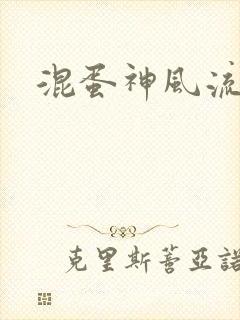 混蛋神風流
克里斯蒂亞諾